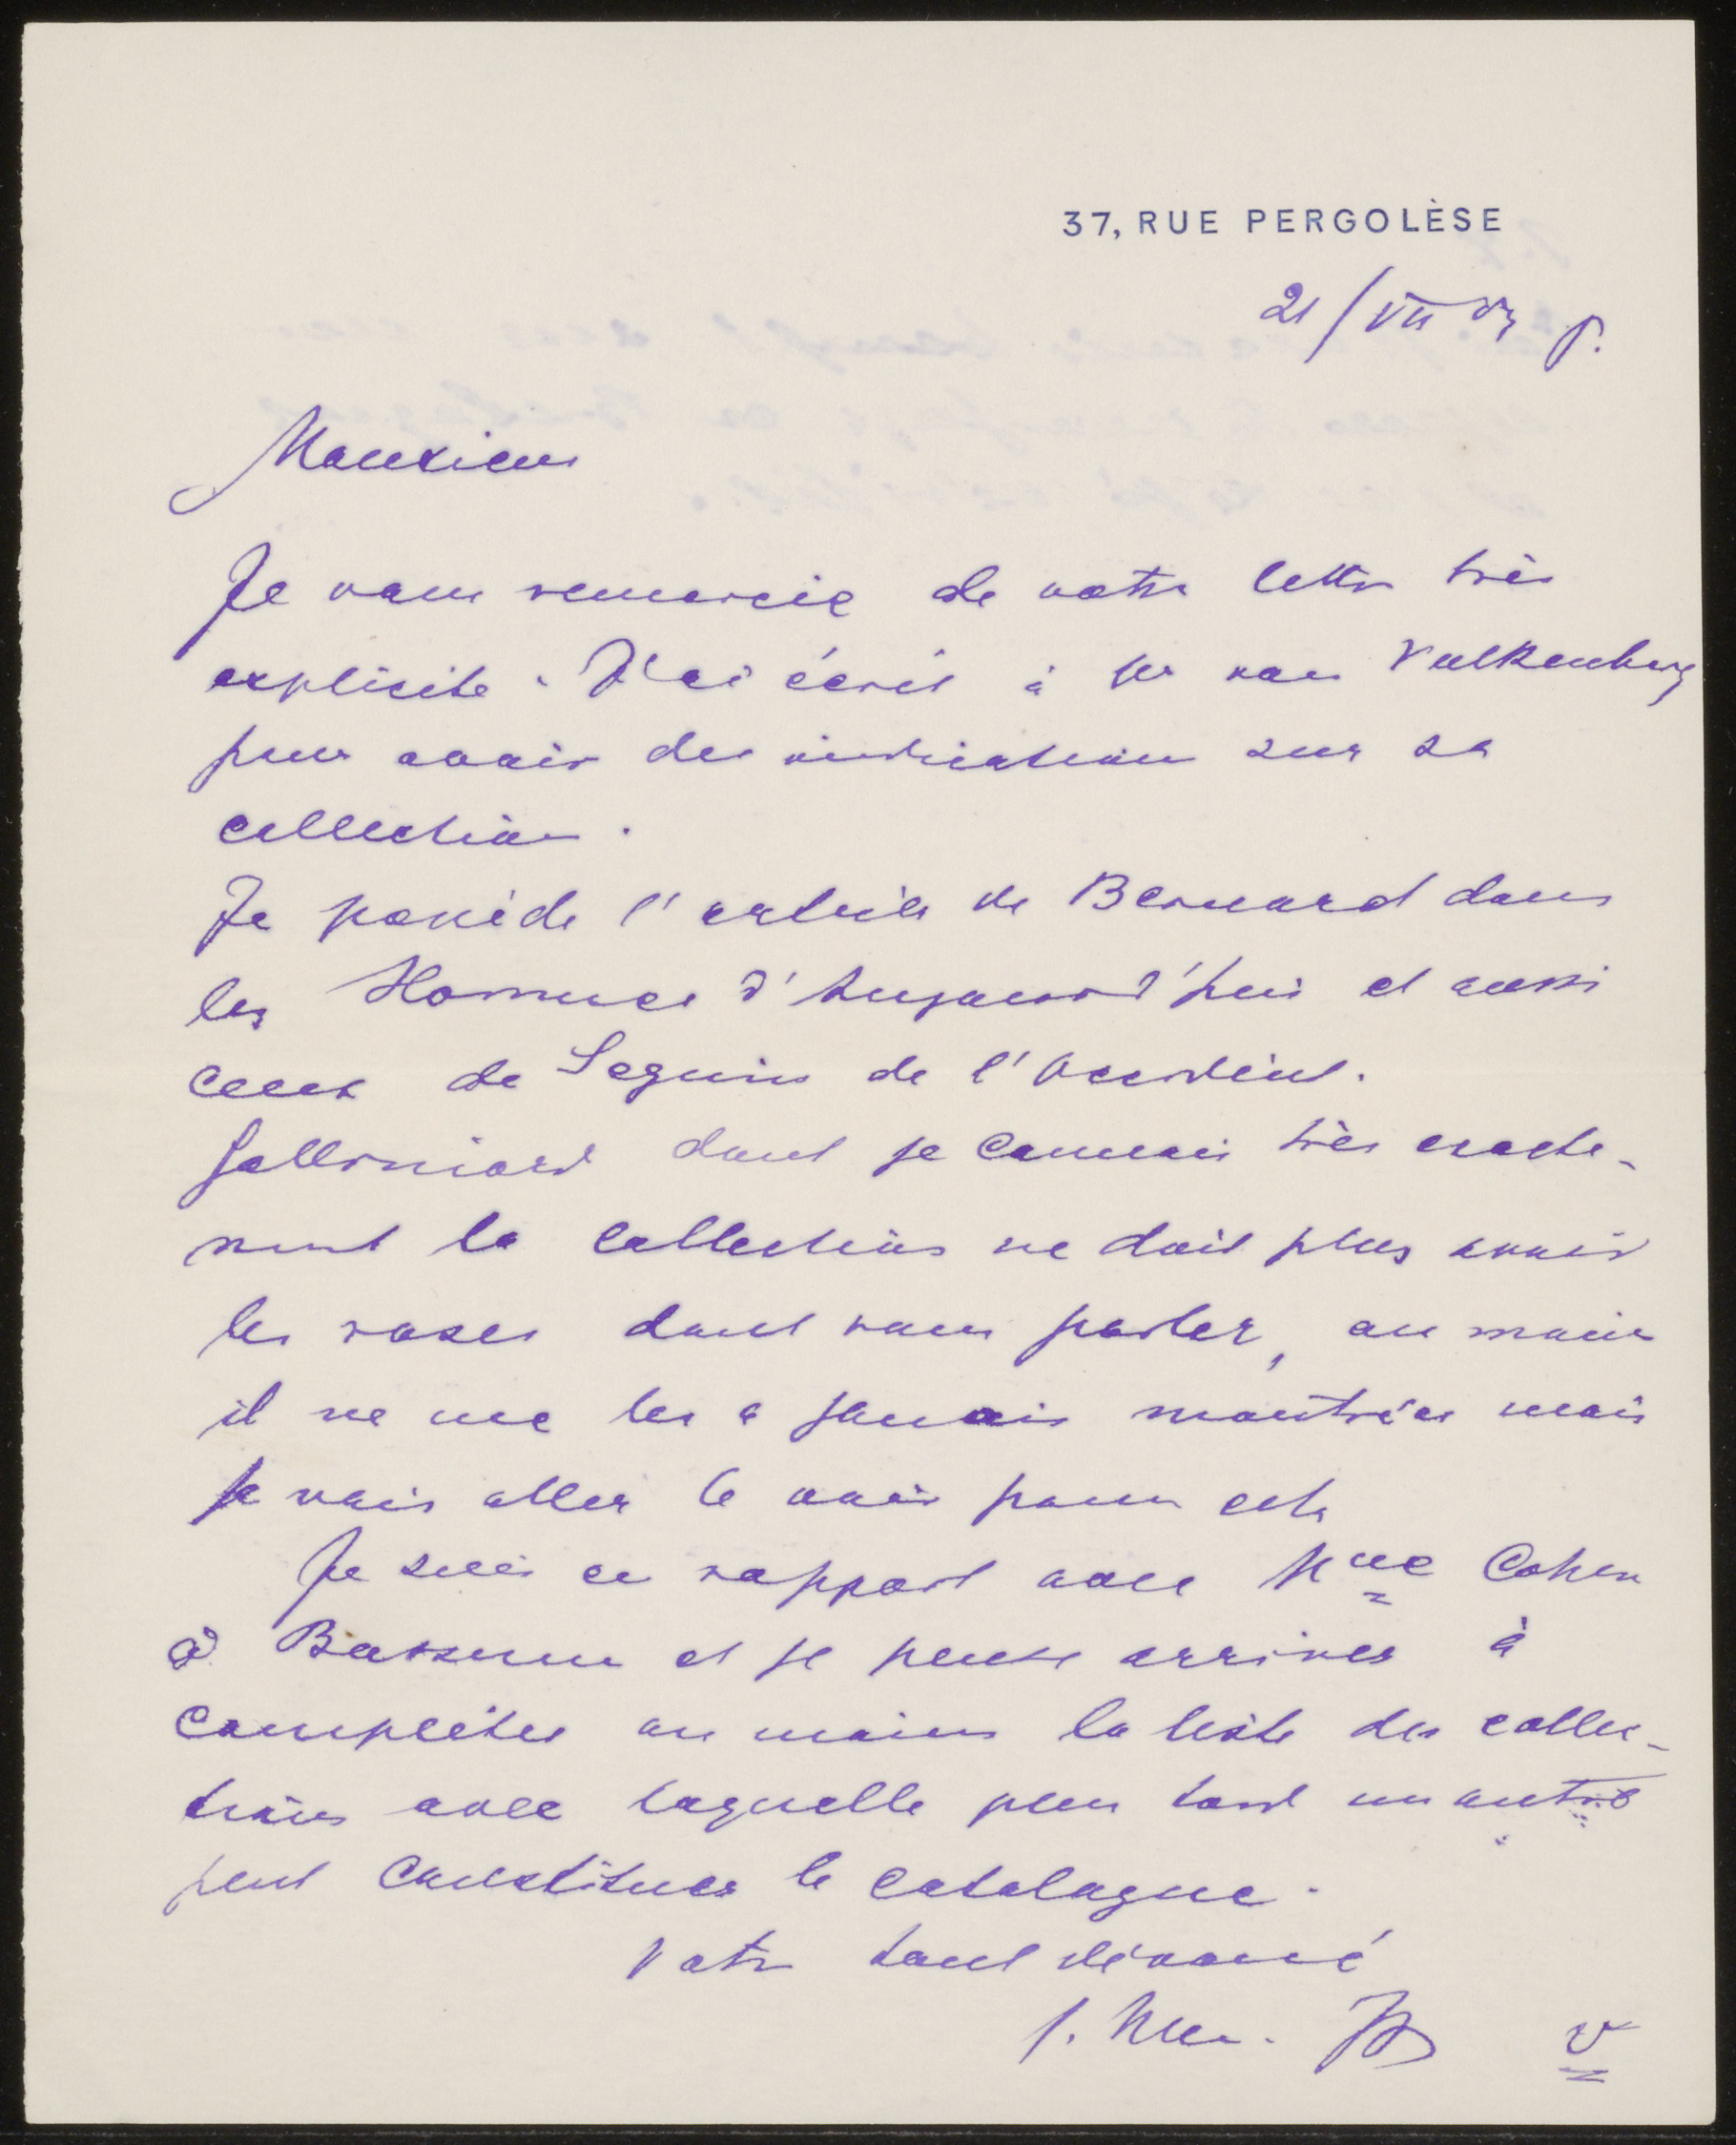 37, RUE PERGOLÈSE
21/VII P.
Monsieur
Je vous remercie de votre lettre très
explicite. J'ai écrit à Mr van Valkenburg
pour avoir des indications sur sa
collection.
Je possède l'article de Bernard dans
les Hommes d'Aujourd'hui et aussi
ceux de Seguin de l'Occident.
Gallimard dont je connais très exacte-
ment la collection ne doit plus avoir
les roses dont vous parlez, au moins
il ne me les a jamais montrées mais
je vais aller le voir pour cela
Je suis en rapport avec Mme Cohen
à Bussum et je pense arriver à
compléter au moins la liste des collec-
tions avec laquelle plus tard un autre
peut constituer le catalogue.
Votre tout dévoué